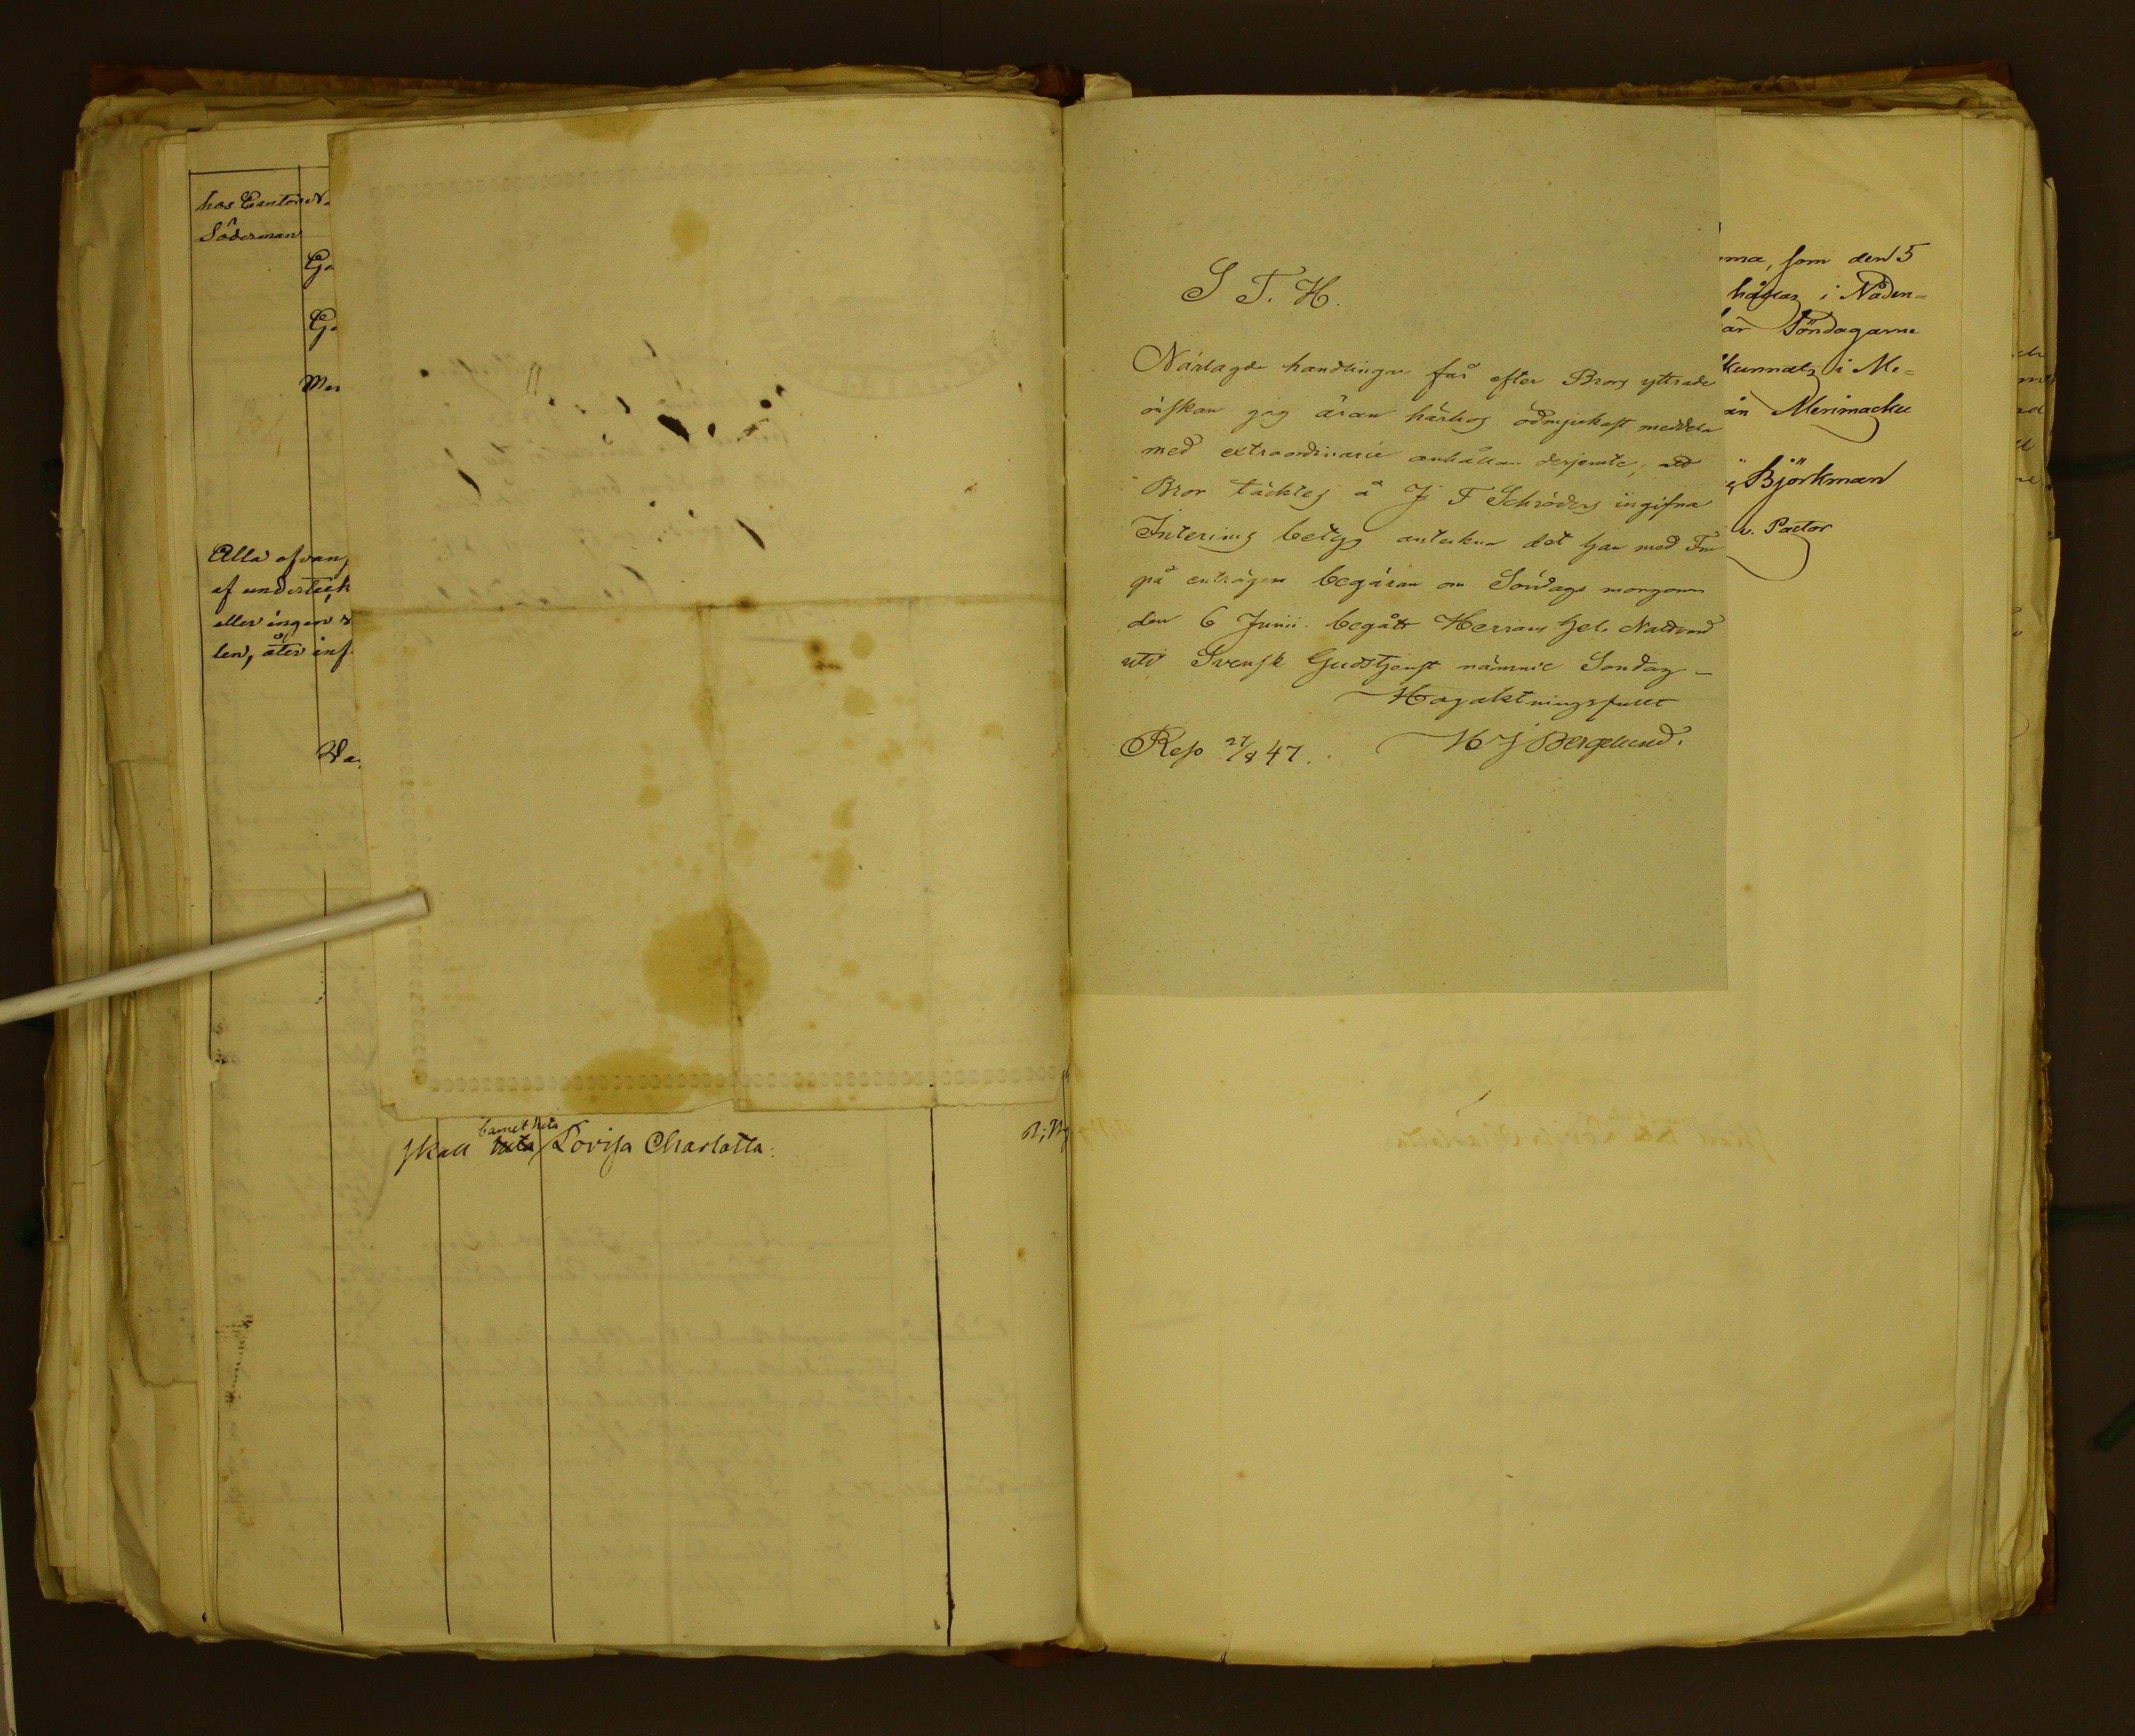 hos Cantor N
Söderman
Ga
Ga
Mar
Alla ofvan
af underteck
eller ingen
len, åter inf
Wa
skall barnet heta Lovisa Charlotta.
S T. H.
Närlagde handlingar får efter Brors yttrade
önskan jag äran härhos ödmjukast meddela
med extraordinarie anhållan derjemte, att
Bror täcktes å J F Schröders ingifna
Interims betyg anteckna det han med Fru
på enträgen begäran om Söndags morgonen
den 6 Junii begått Herrans Hel. Nattvard
uti Svensk Gudstjenst nämnde Söndag –
Högaktningsfullt
Reso 27/8 47. H J Bergelund.
ma, som den 5
hålles i Nåden=
är Söndagarne
kunnats i Me=
in Merimasku
Björkman
v. Pastor